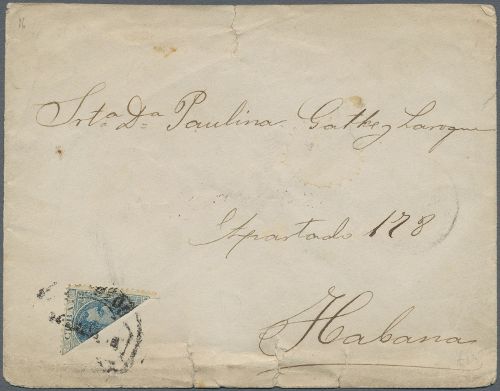 16
Srta Da Paulina Gathe y Laroque
Apartado 178
Habana